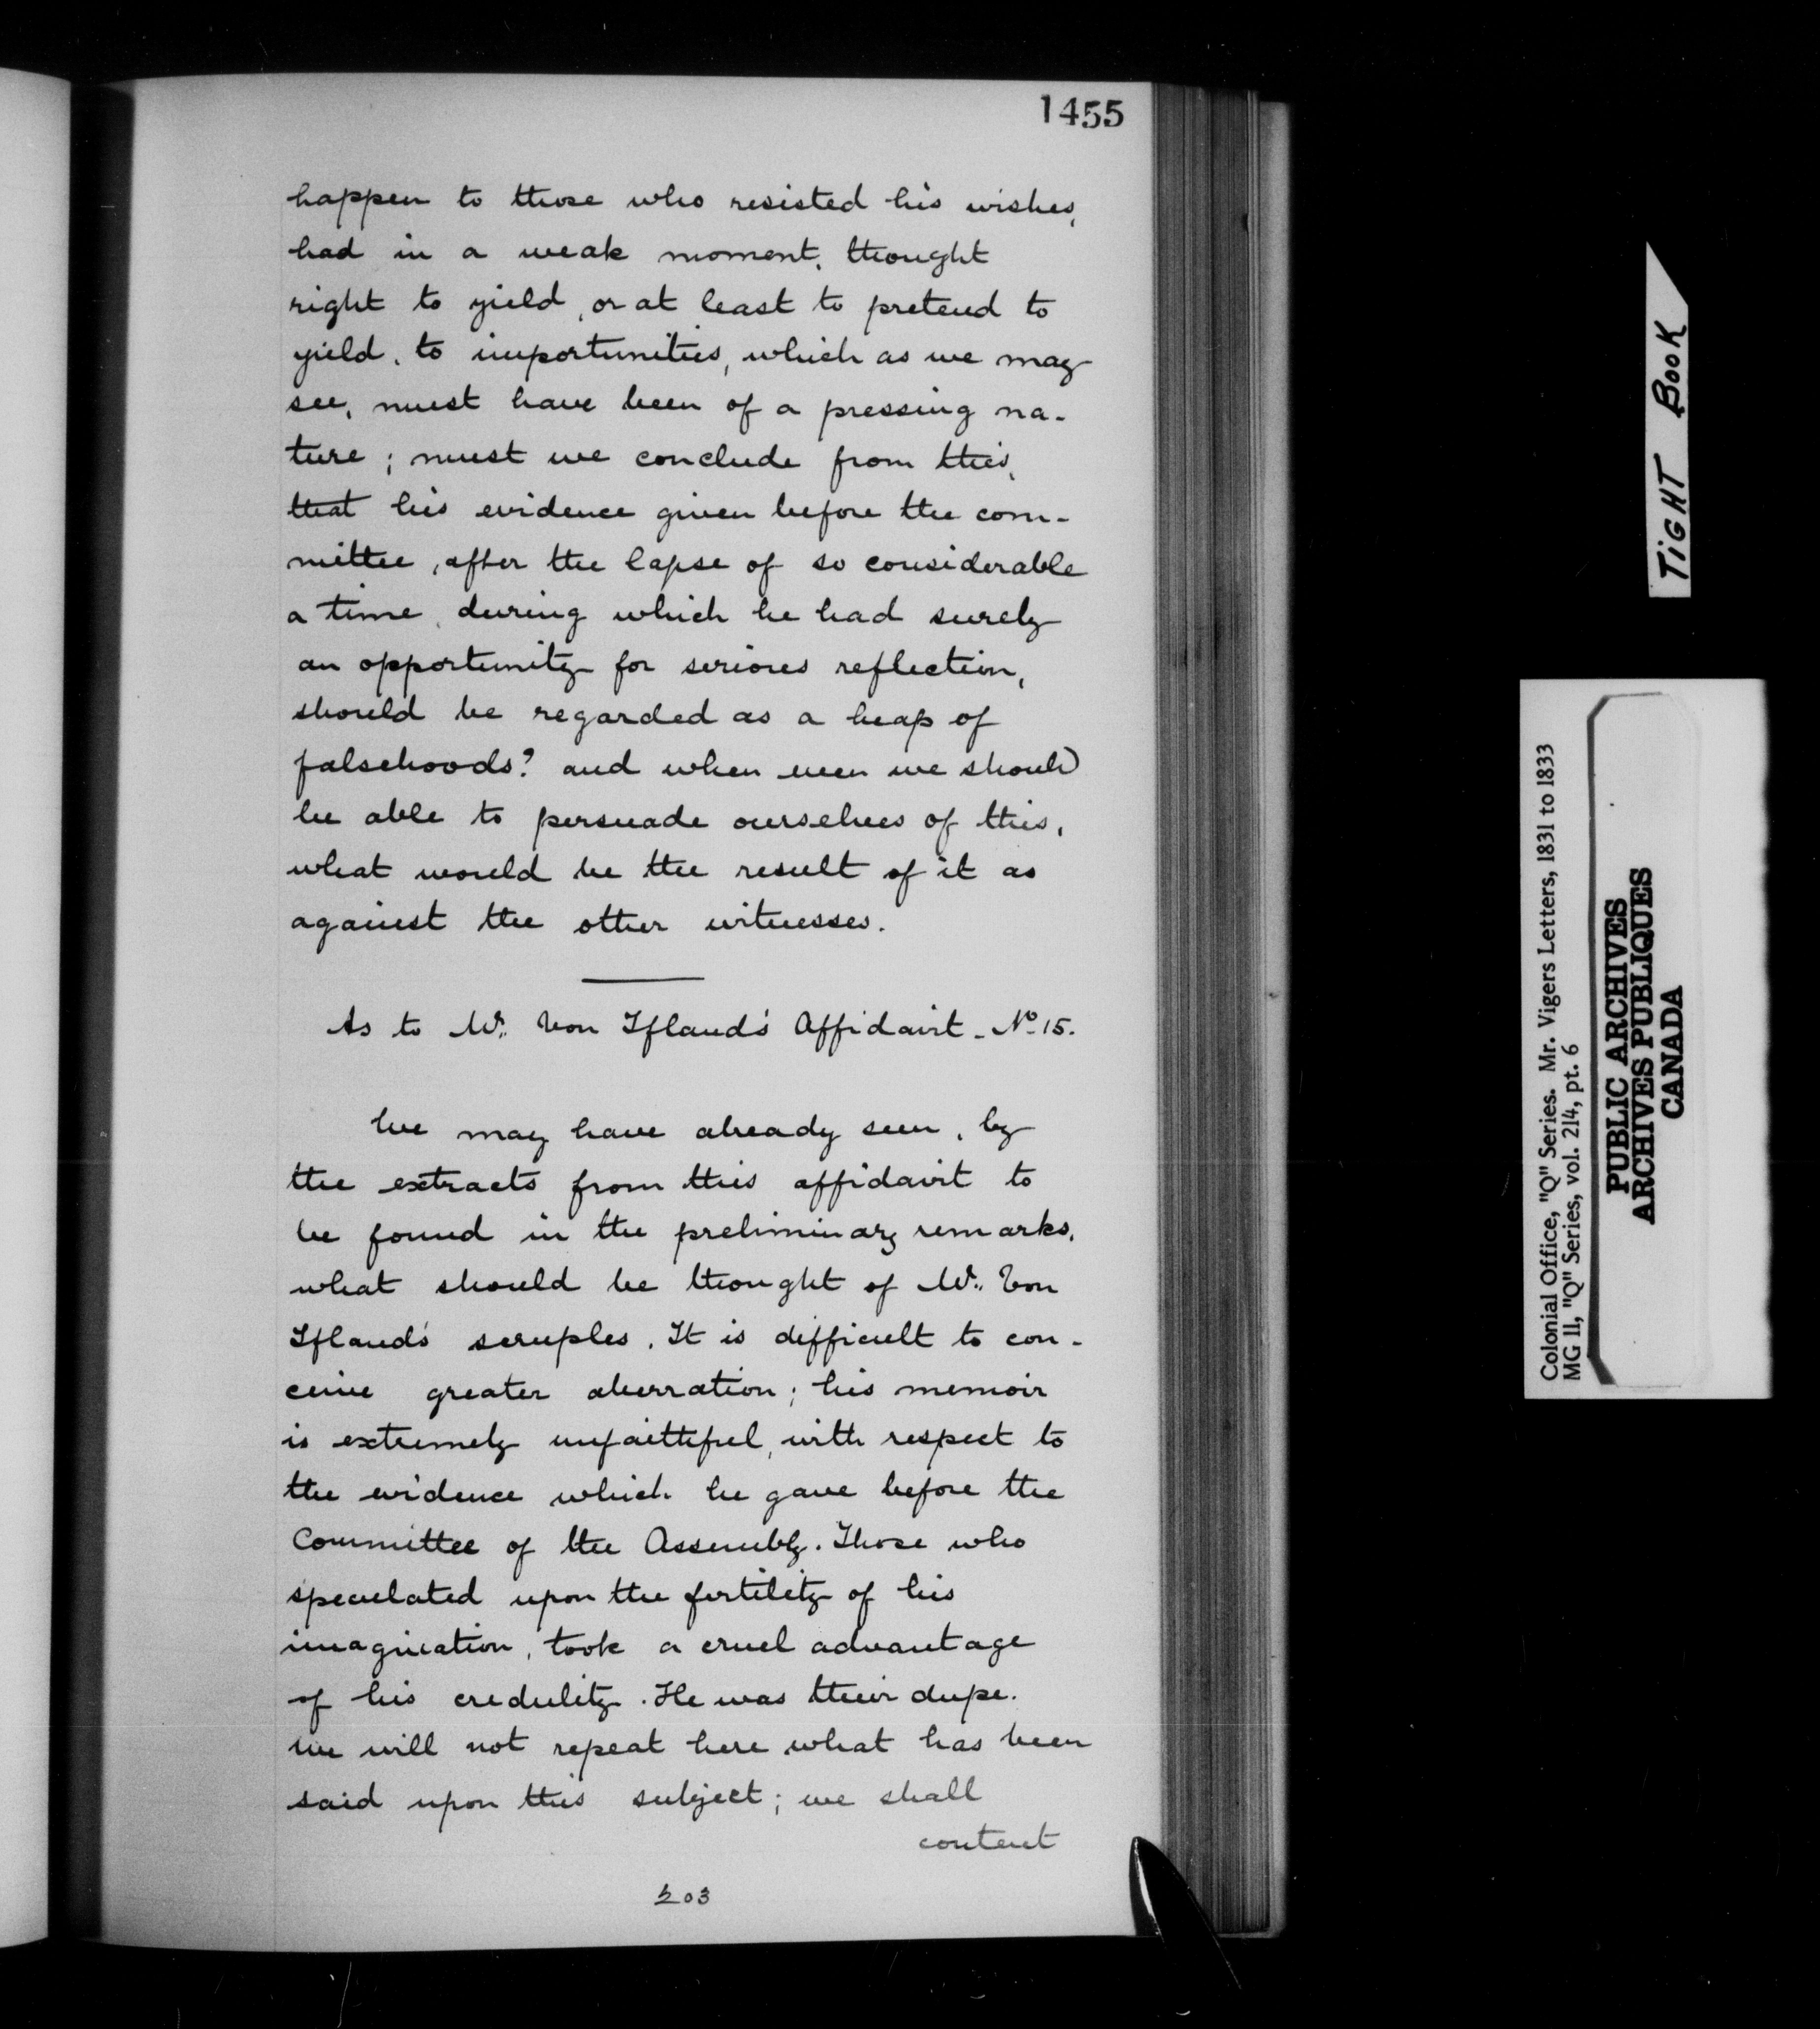 1455
happen to those who resisted his wishes,
had in a weak moment, thought
right to yield, or at least to pretend to
yield, to importunities, which as we may
see, must have been of a pressing na-
ture; must we conclude from this,
that his evidence given before the com-
mittee, after the lapse of so considerable
a time, during which he had surely
an opportunity for serious reflection,
should be regarded as a heap of
falsehoods? and when even we should
be able to persuade ourselves of this,
what would be the result of it as
against the other witnesses.
As to Mr. Von Iffland's Affidavit - No 15.
We may have already seen, by
the extracts from this affidavit to
be found in the preliminary remarks,
what should be thought of Mr. Von
Iffland's scruples. It is difficult to con-
ceive greater aberration; his memoir
is extremely unfaithful, with respect to
the evidence which he gave before the
Committee of the Assembly. Those who
speculated upon the fertility of his
imagination, took a cruel advantage
of his credulity. He was their dupe.
We will not repeat here what has been
said upon this subject; we shall
content
203
TIGHT BOOK
Colonial Office, "Q" Series. Mr. Vigers Letters, 1831 to 1833
MG 11, "Q" Series, vol. 214, pt. 6
PUBLIC ARCHIVES
ARCHIVES PUBLIQUES
CANADA